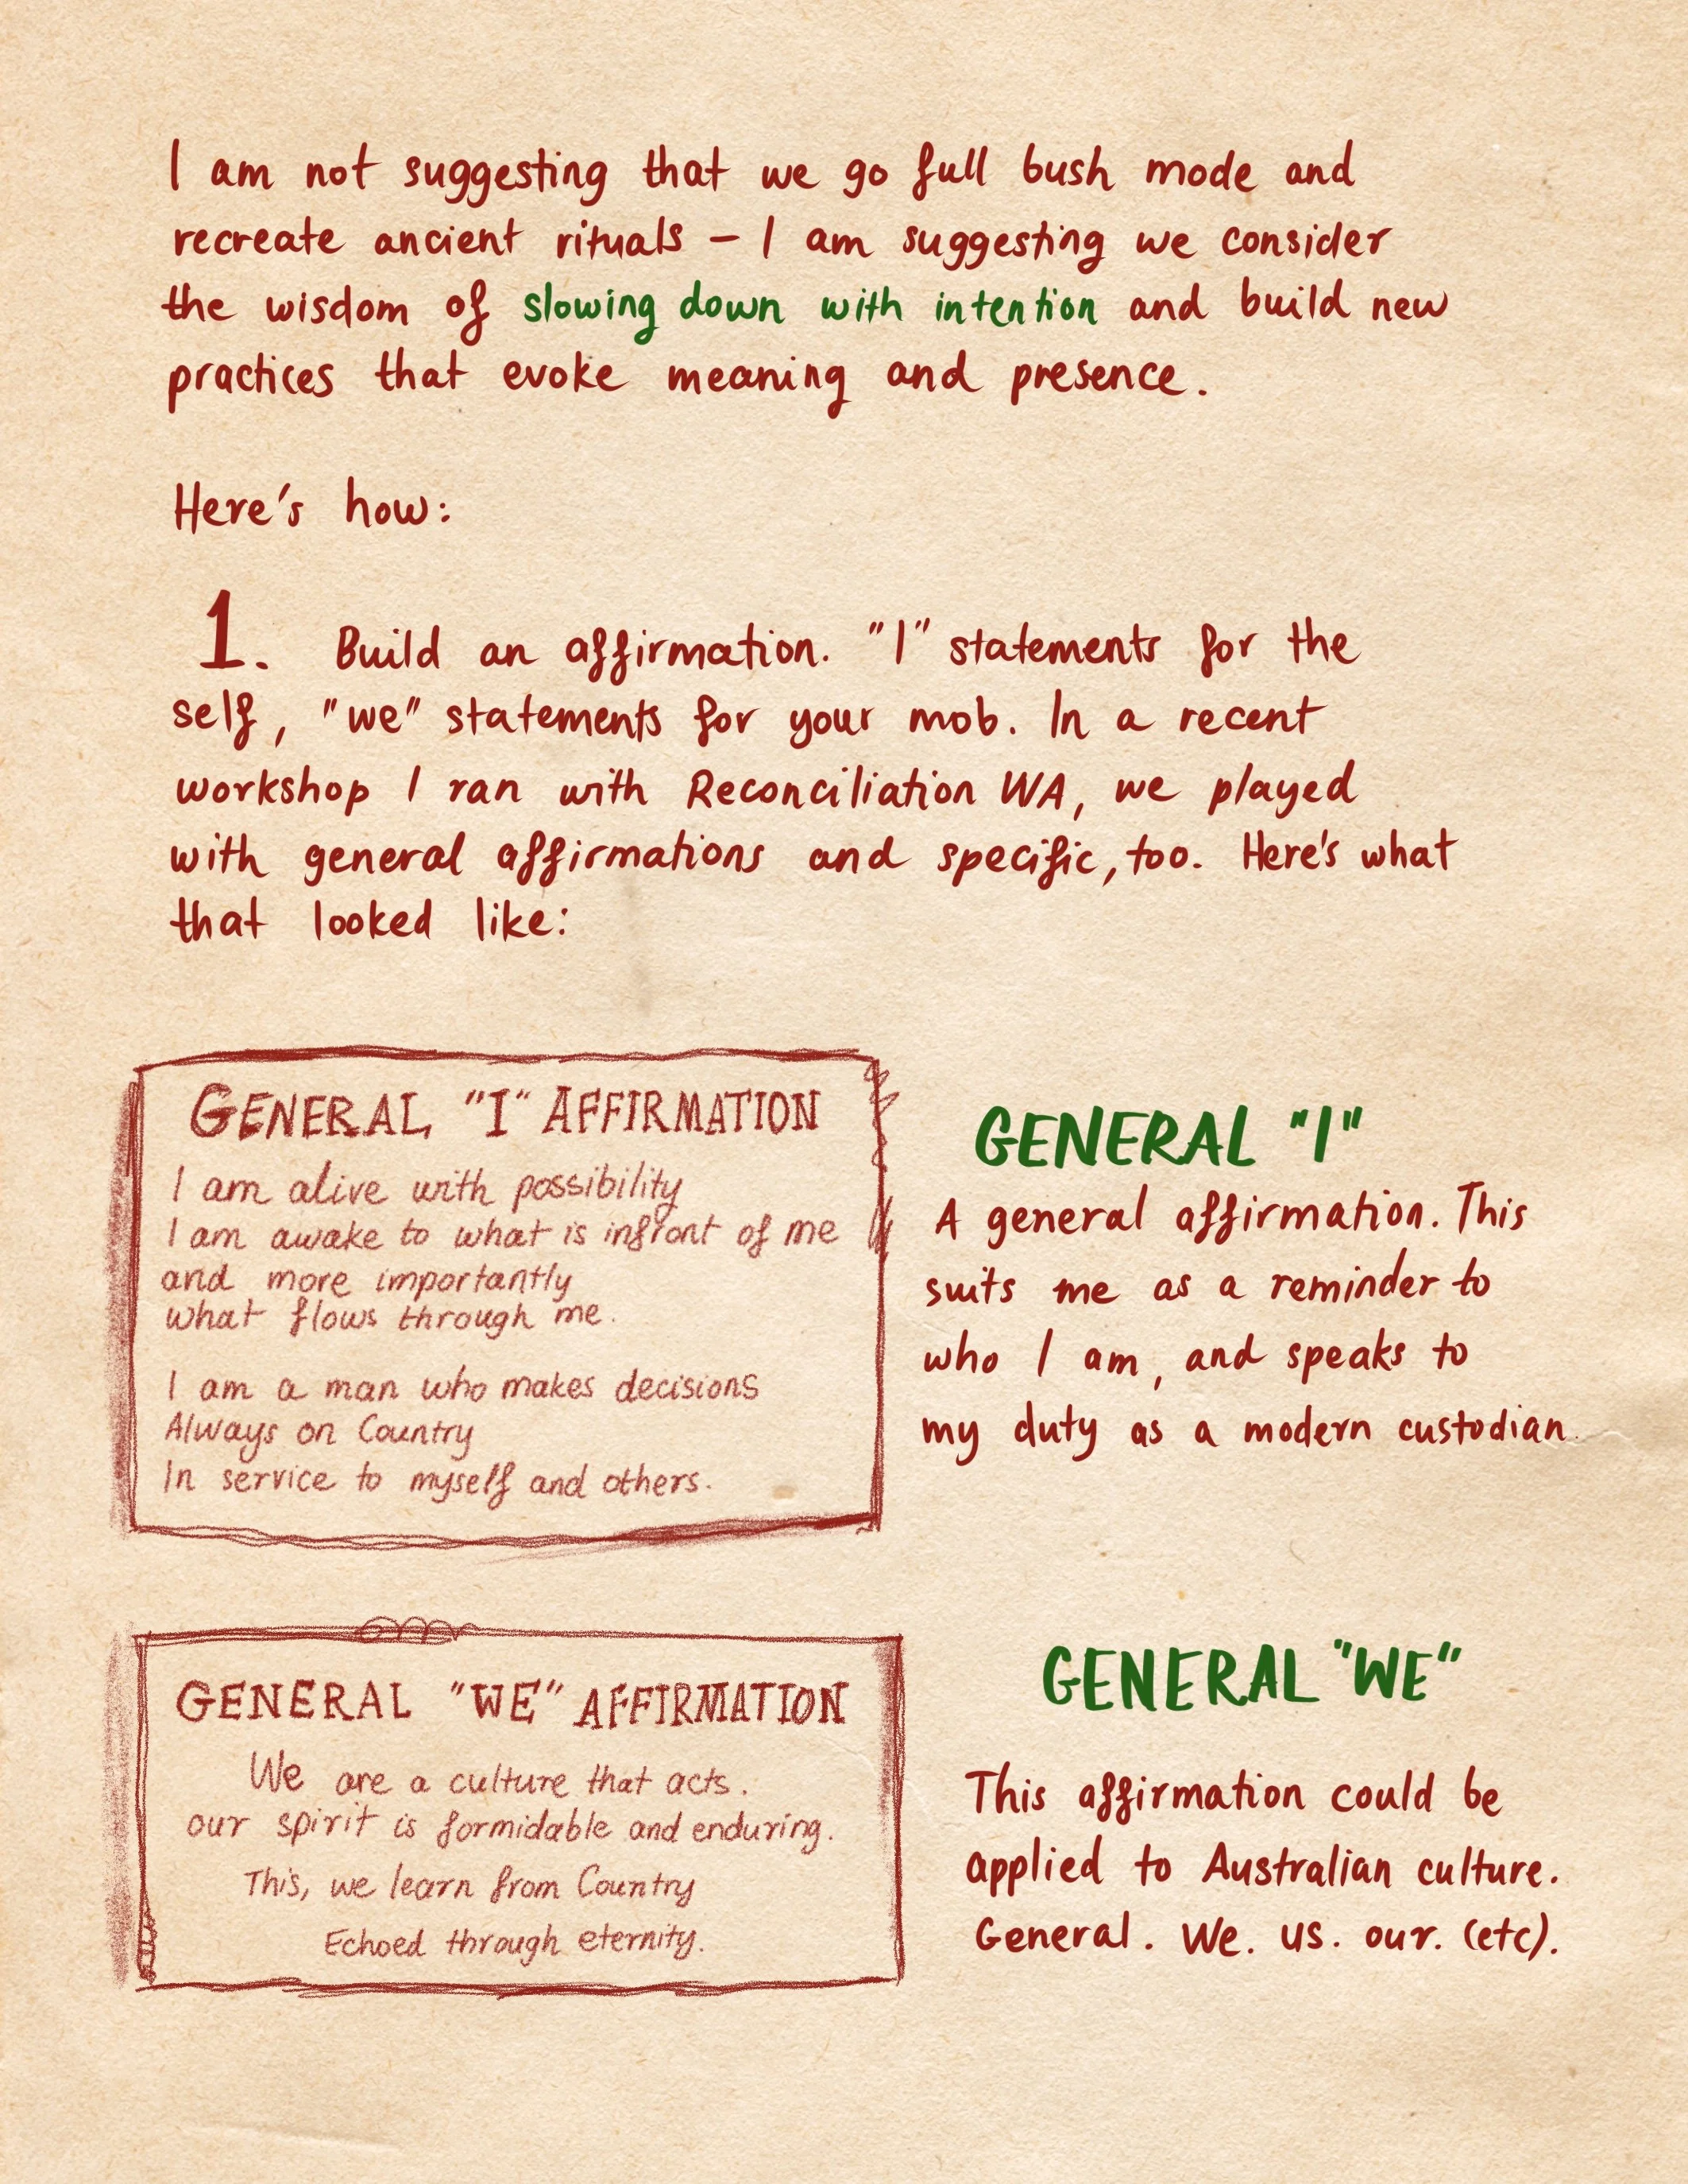 I am not suggesting that we go full bush mode and
recreate ancient rituals – I am suggesting we consider
the wisdom of slowing down with intention and build new
practices that evoke meaning and presence.
Here's how:
1. Build an affirmation. "I" statements for the
self, "we" statements for your mob. In a recent
workshop I ran with Reconciliation WA, we played
with general affirmations and specific, too. Here's what
that looked like:
GENERAL "I" AFFIRMATION
I am alive with possibility
I am awake to what is infront of me
and more importantly
what flows through me.
I am a man who makes decisions
Always on Country
In service to myself and others.
GENERAL "I"
A general affirmation. This
suits me as a reminder to
who I am, and speaks to
my duty as a modern custodian.
GENERAL "WE" AFFIRMATION
We are a culture that acts.
our spirit is formidable and enduring.
This, we learn from Country
Echoed through eternity.
GENERAL "WE"
This affirmation could be
applied to Australian culture.
General. We. us. our. (etc).